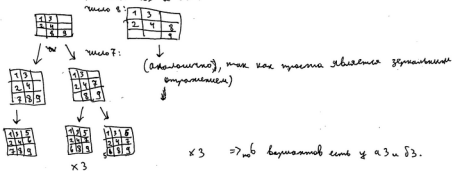 число 8:
1 3
2 4
9
1 3
2 4 8
9
число 7:
(аналогично, так как просто является зеркальным отражением)
1 3
2 4
7 8 9
1 3
2 4 7
8 9
1 3 5
2 4 6
7 8 9
1 3 5
2 4
8 9
1 3
2 4
8 9
x 3
x 3 => по 6 вариантов есть у а3 и б3.